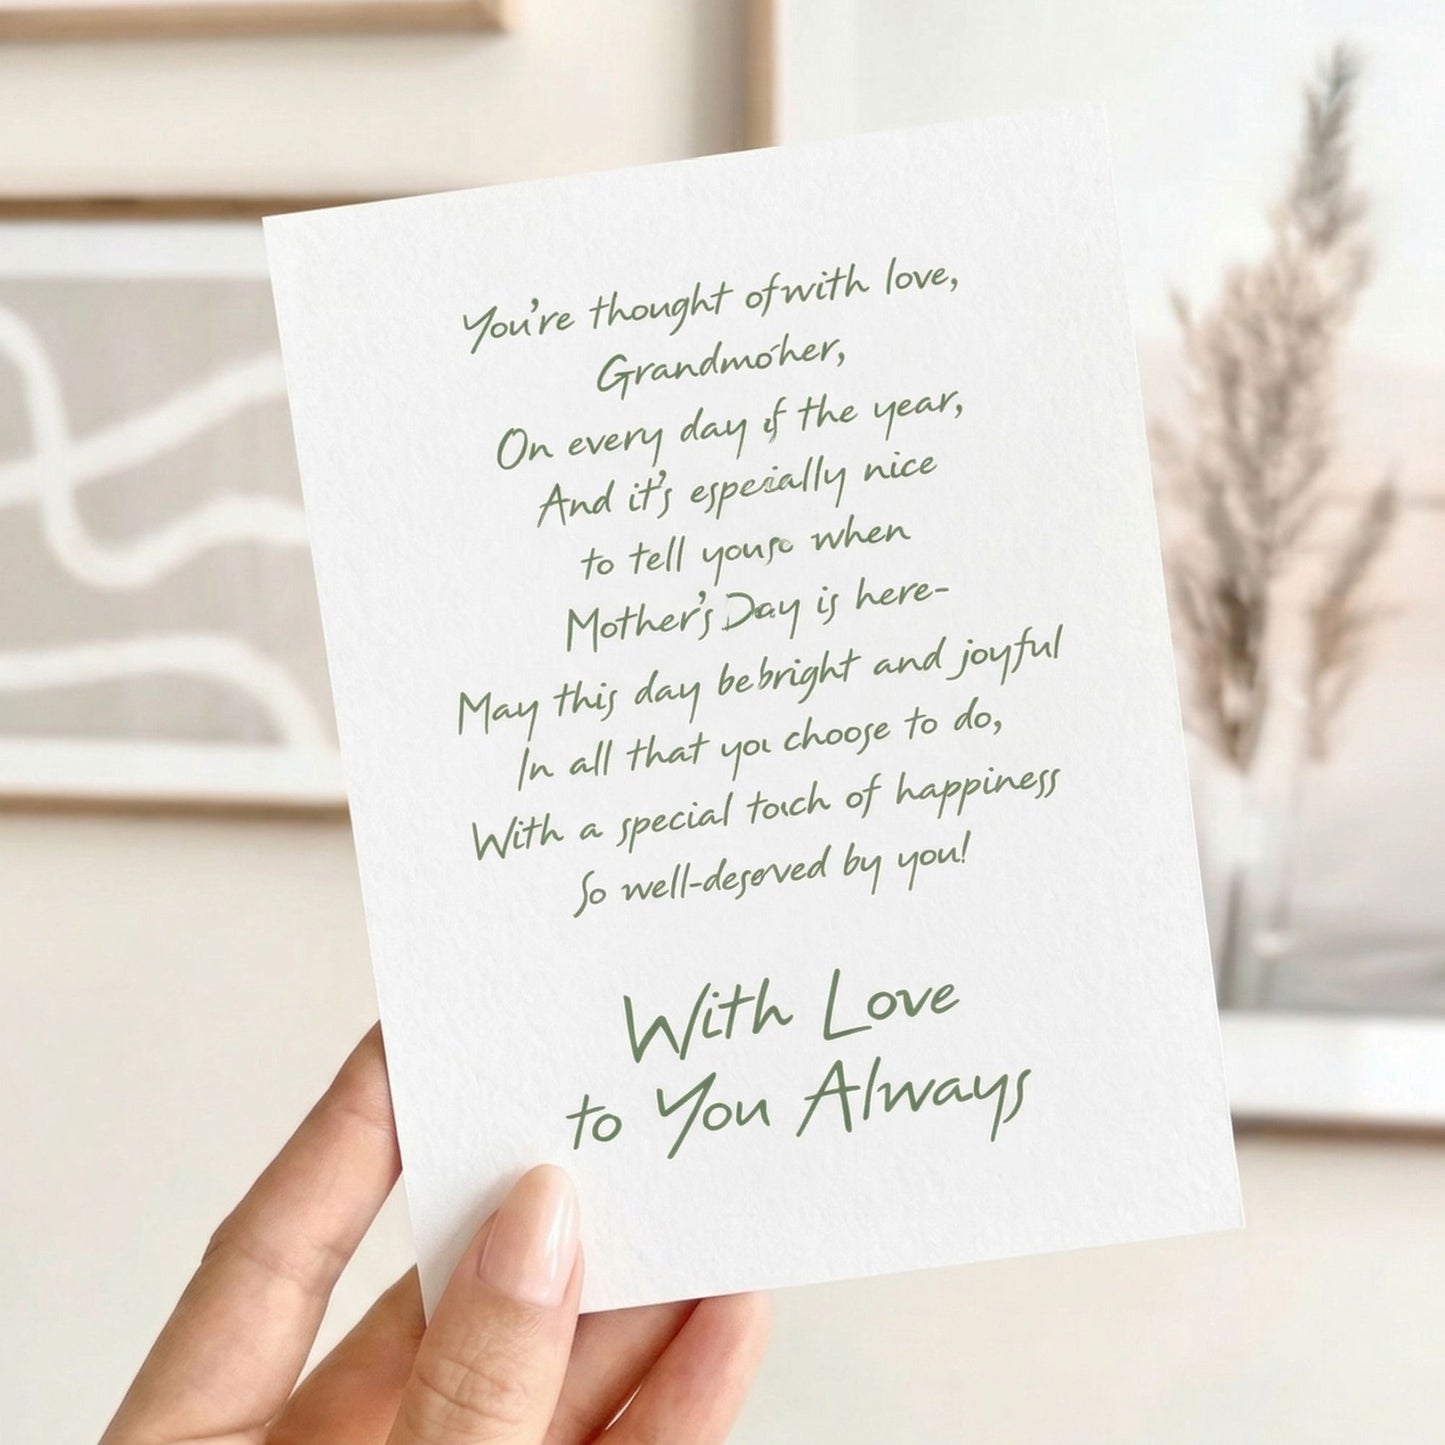 You're thought of with love,
Grandmother,
On every day of the year,
And it's especially nice
to tell you so when
Mother's Day is here-
May this day be bright and joyful
In all that you choose to do,
With a special touch of happiness
So well-deserved by you!
With Love
to You Always